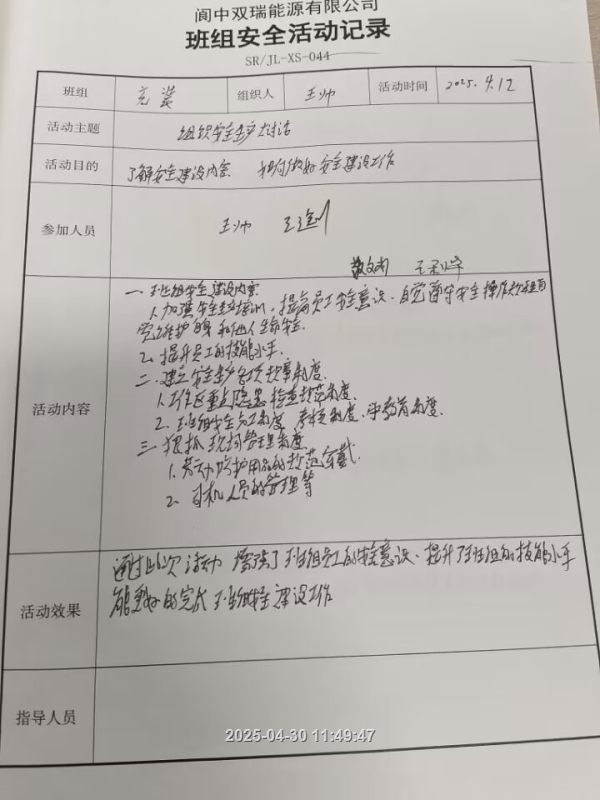 阆中双瑞能源有限公司
班组安全活动记录
SR/JL-XS-044
班组 充装 组织人 王帅 活动时间 2025.4.12
活动主题 组织安全生产大讨论
活动目的 了解安全建设内容 如何做好安全建设工作
参加人员 王帅
活动内容
一.班组安全建设内容
1.加强安全生产培训,提高员工安全意识,自觉遵守安全操作规程自
觉维护自身和他人生命安全.
2.提升员工的技能水平.
二.建立安全生产各项规章制度.
1.工作区重点隐患检查规范制度.
2.班组安全员工制度,考核制度,
三.狠抓现场管理制度
1.劳动防护用品的规范穿戴.
2.司机人员的管理等
活动效果 通过此次活动 增强了班组员工的安全意识、提升了班组的技能水平
能更好的完成班组安全建设工作
指导人员
2025-04-30 11:49:47